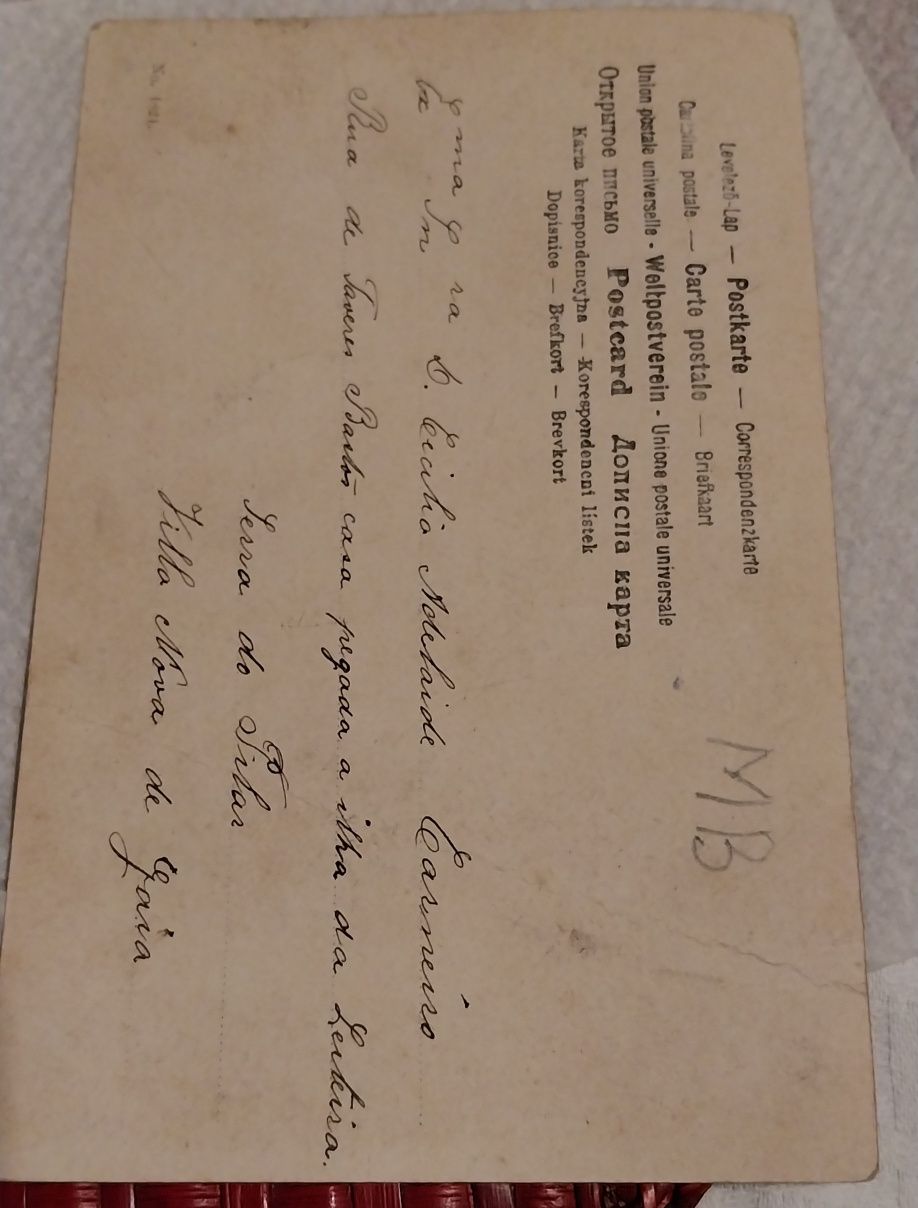 Levelező-Lap — Postkarte — Correspondenzkarte
Cartolina postale — Carte postale — Briefkaart
Union postale universelle - Weltpostverein - Unione postale universale
Открытое письмо Postcard Дописна карта
Karta korespondencyjna — Korespondencni lístek
Dopisnice — Brefkort — Brevkort
MB
Exma Snra D. Cecilia Adelaide Carneiro
Rua de Tavares Bastos casa pegada a ilha da Leiteira.
Serra do Pilar
Villa Nova de Gaia